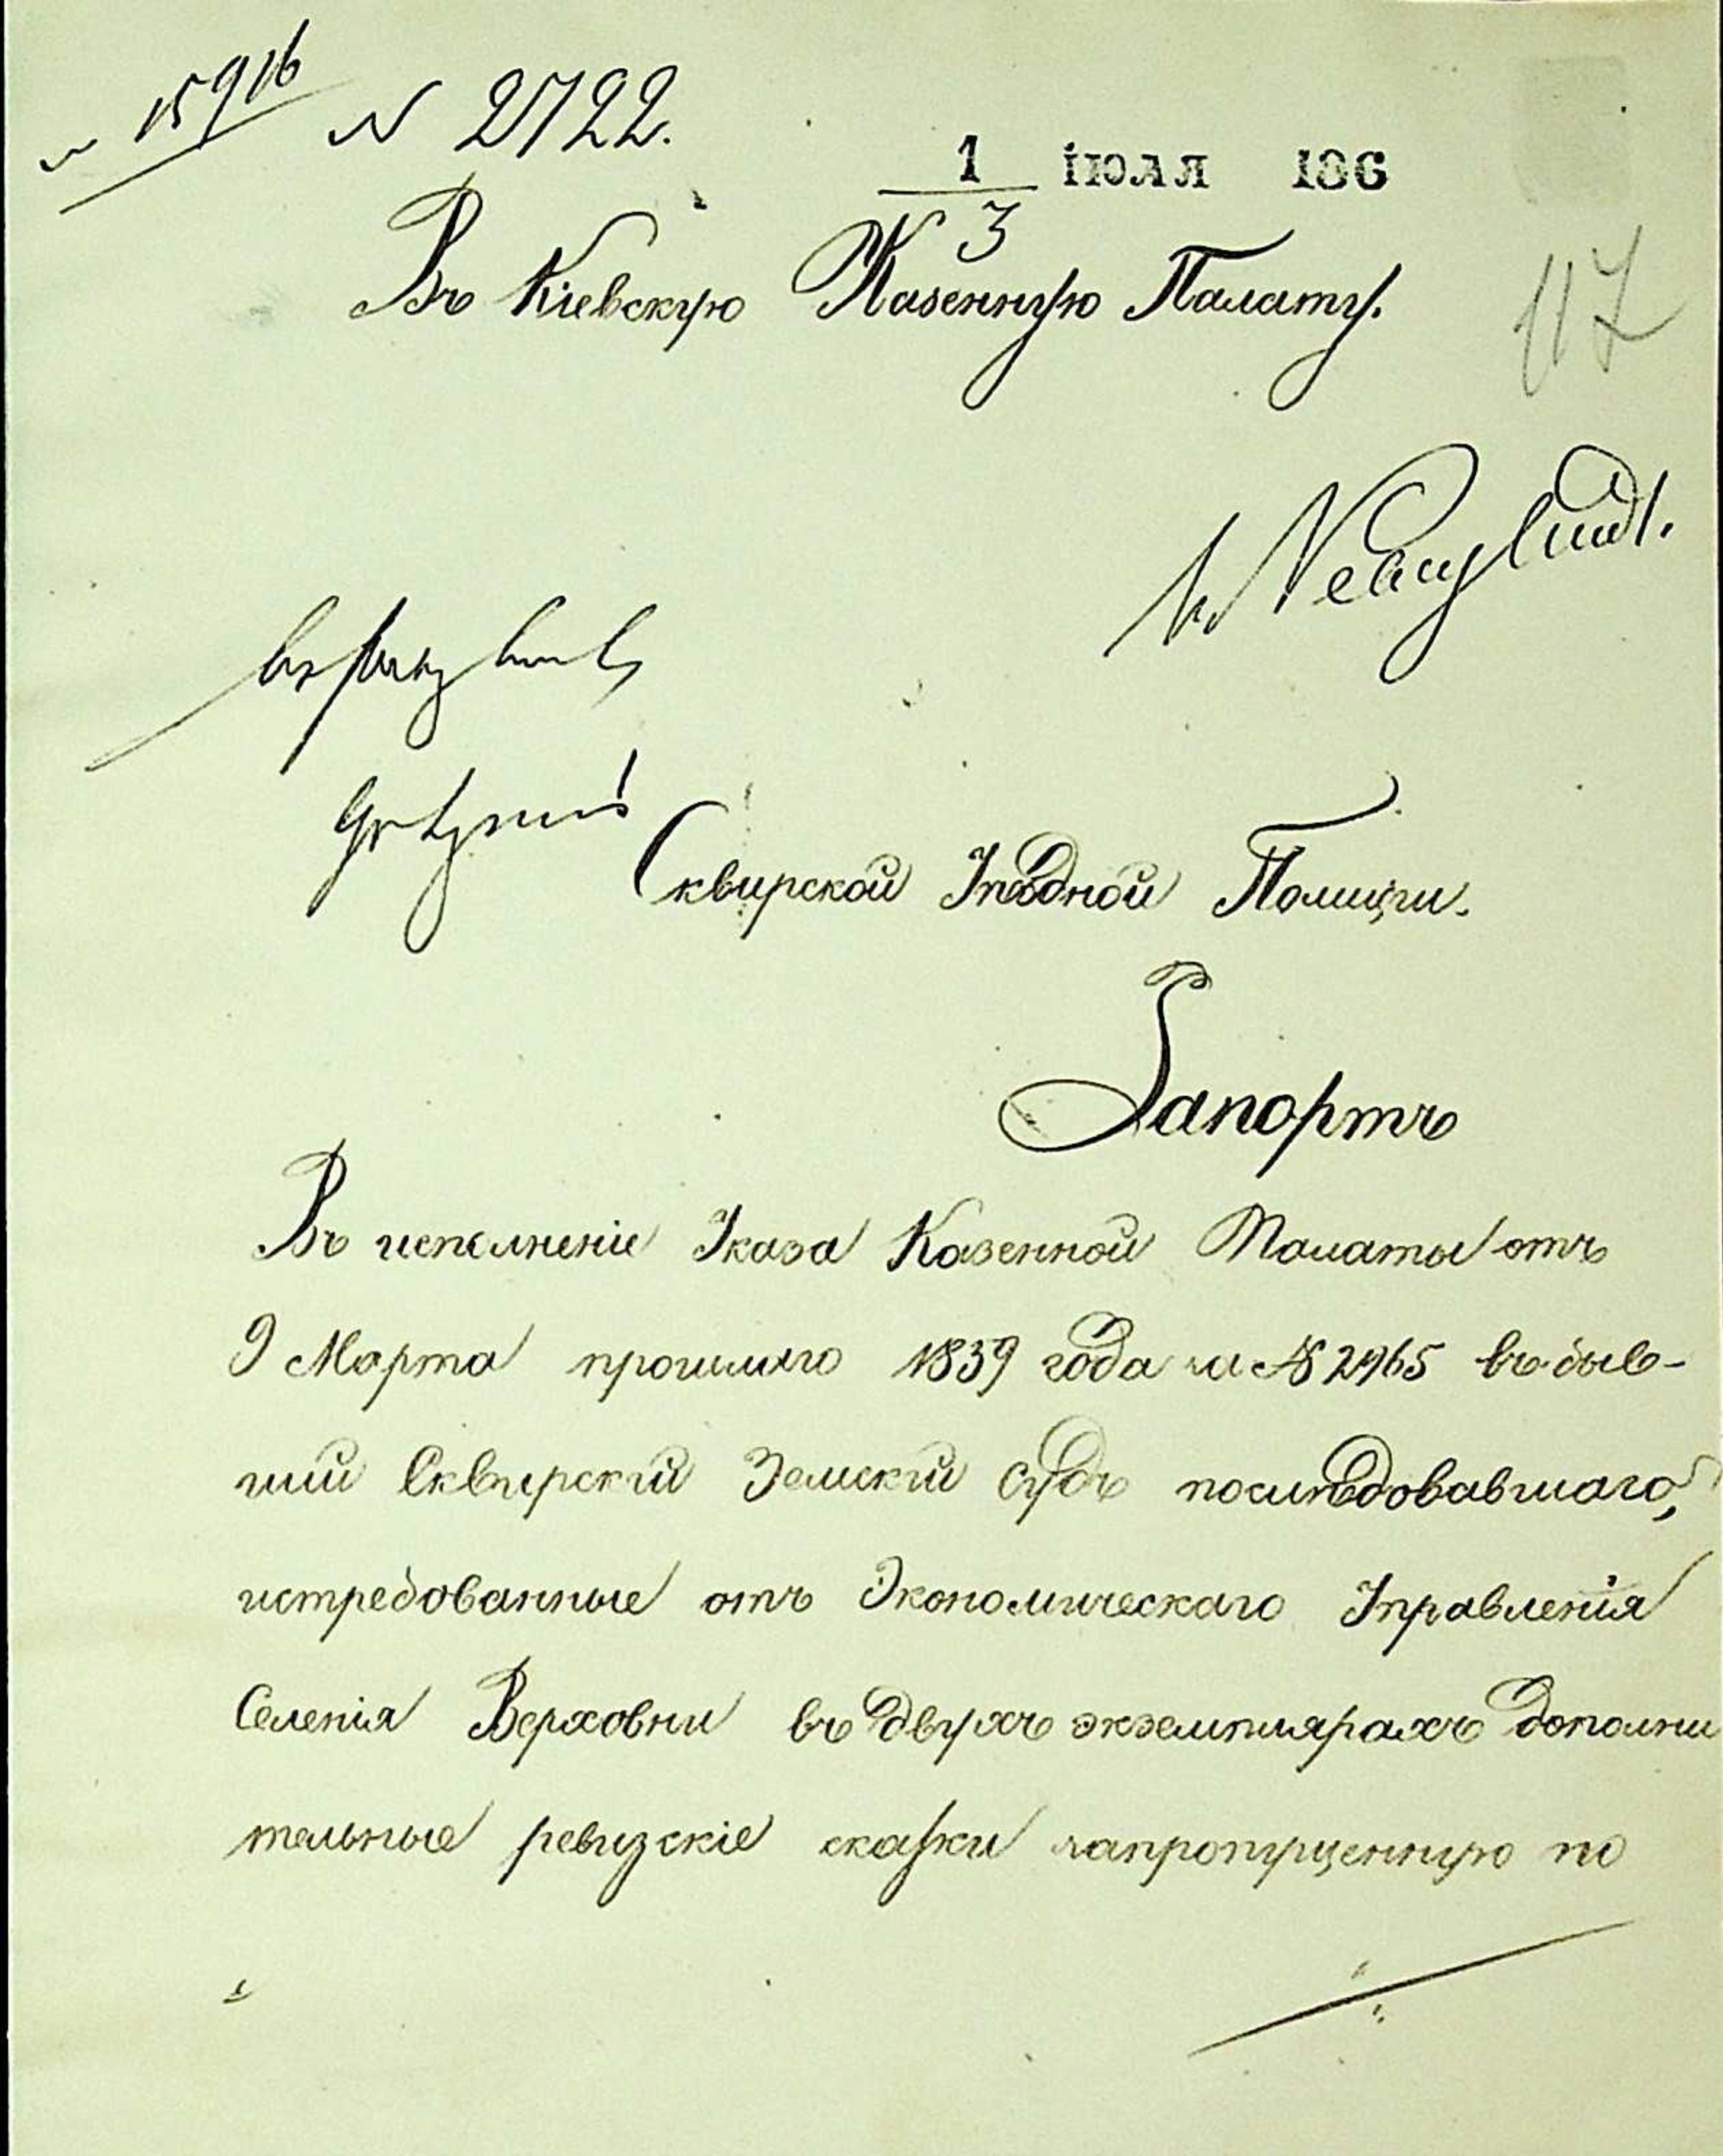 15916 N 2722.
1 іюля 186
3
Въ Кіевскую Казенную Палату.
117
Сквирской Уѣздной Полиціи.
Рапортъ
Въ исполненіе Указа Казенной Палаты отъ
9 Марта прошлаго 1839 года за № 2965 въ быв-
шій Сквирскій Земскій судъ послѣдовавшаго,
истребованные отъ Экономическаго Управленія
Селенія Верховни въ двухъ экземплярахъ дополни
тельные ревизскіе сказки запропущенную по